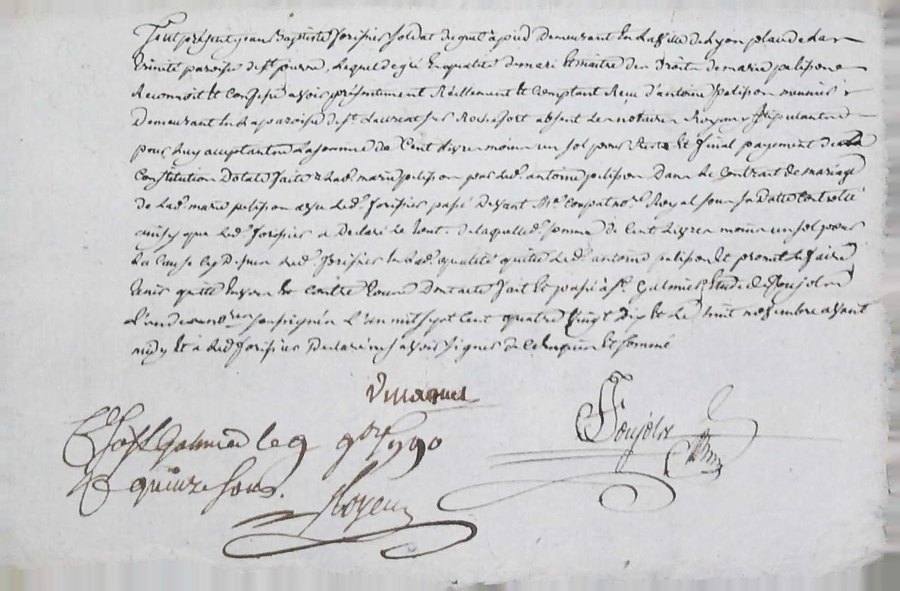 fut présent jean Baptiste forissier soldat de guet à pied demeurant en la ville de Lyon place de la
trinité paroisse de st pierre, lequel de gré en qualité de mari et maitre des droits de marie pelisson
Reconnoit et confesse avoir présentement Réellement et comptant Reçu d'antoine pelisson meunier
demeurant en la paroisse de st Laurent sur Rochefort absent les notaires Royaux stipulant
pour luy acceptant la somme de Cent livres moins un sol pour Reste et final payement de la
Constitution Dotale faite à lad. marie pelisson par led. antoine pelisson Dans le contrat de mariage
de lad. marie pelisson avec led. forissier passé devant Me. Royal sous sa Datte Controllé
ainsy que led. forissier a Declaré le tout. de laquelle somme de Cent livres moins un sol pour
la Cause cy Dessus led. forissier en lad. qualité quitte led. antoine pelisson et promet le faire
tenir quitte Envers et contre tous Dont acte fait et passé à st Galmier Etude de Poujolre
l'un des nores. soussignés l'an mil sept Cent quatre vingt Dix et le huit novembre avant
midy et a led. forissier Declaré ne savoir signer de ce enquis et sommé
Clé à st Galmier le 9 9bre 1790
R quinze sous.